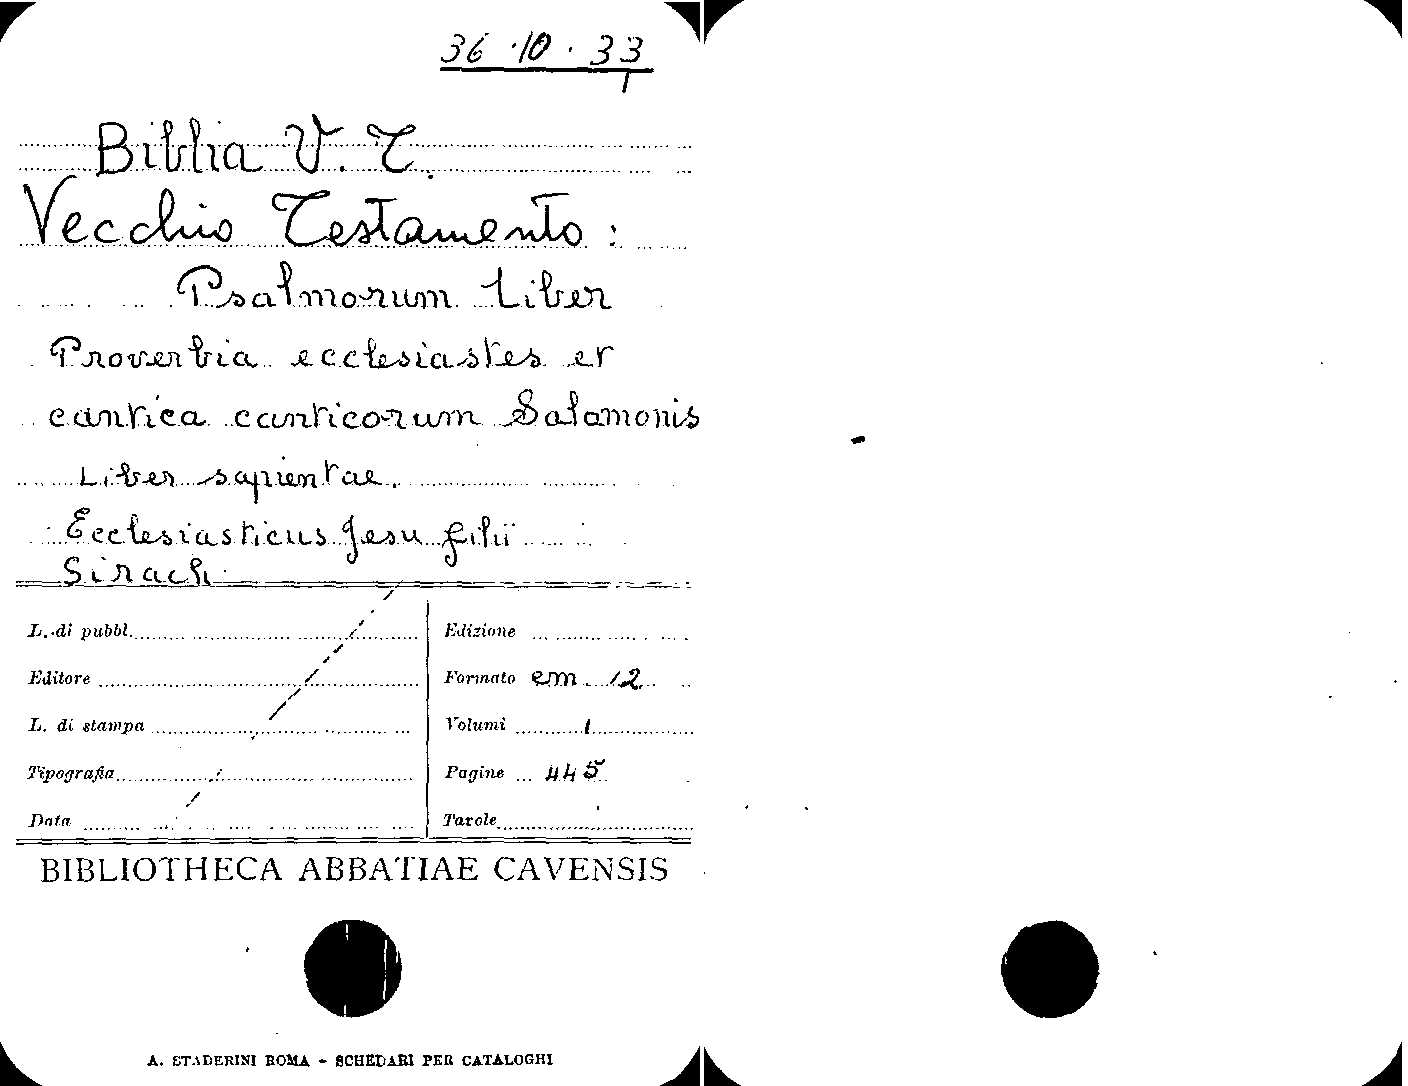 36 · 10 · 33
1
Biblia V. T.
Vecchio Testamento :
Psalmorum Liber
Proverbia ecclesiastes et
cantica canticorum Salamonis
Liber sapientae.
Ecclesiasticus Jesu filii
Sirach
L. di pubbl.
Editore
L. di stampa
Tipografia
Data
Edizione
Formato em 12
Volumi 1
Pagine 445
Tavole
BIBLIOTHECA ABBATIAE CAVENSIS
A. STADERINI ROMA - SCHEDARI PER CATALOGHI